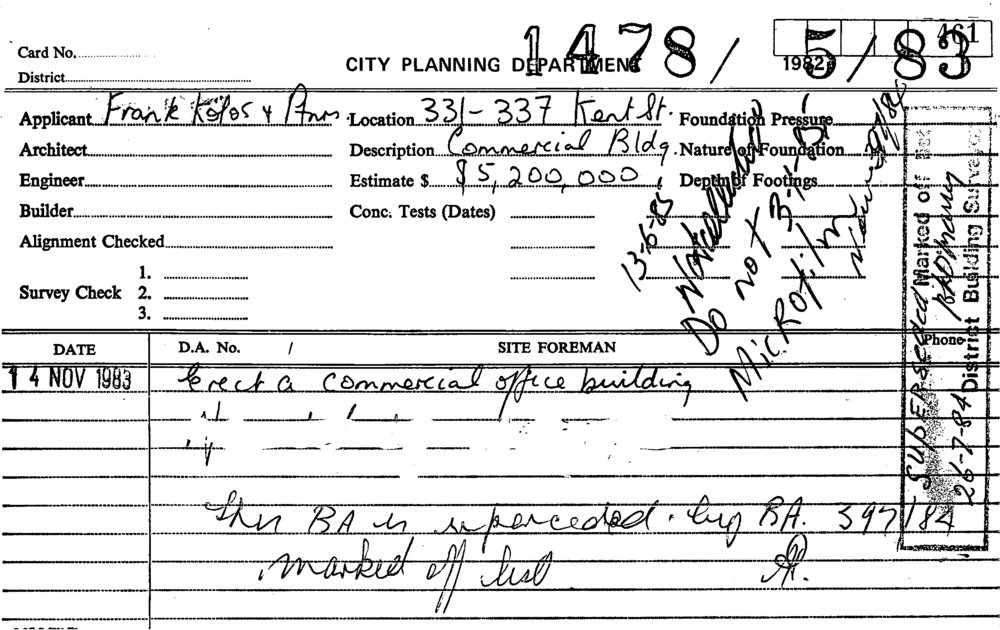 Card No.
District
CITY PLANNING DEPARTMENT
1478/5/83
461
1982
Applicant Frank Kolos &
Location 331-337 Kent St.
Foundation Pressure
Architect
Description Commercial Bldg.
Nature of Foundation
Engineer
Estimate $ $5,200,000
Depth of Footings
Builder
Conc. Tests (Dates)
Alignment Checked
Survey Check
1.
2.
3.
13-6-85
Do not
MicRofilm
SUPERSEDED Marked off
26-7-84 District Building Surveyor
DATE
D.A. No. /
SITE FOREMAN
Phone
14 NOV 1983
Erect a commercial office building
This BA is superceded by BA. 597/84
marked off list